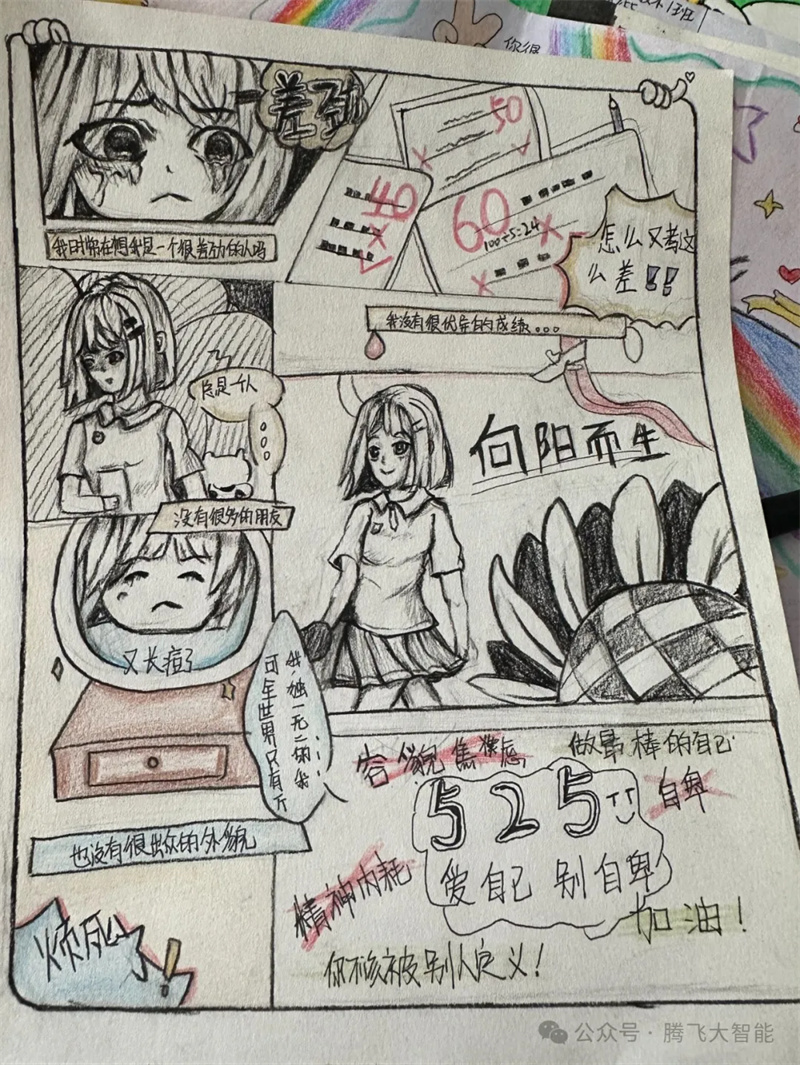 你很
差劲
我时常在想我是一个很差劲的人吗
50
40
60
100÷5=24
怎么又考这
么差!!
我没有很优异的成绩...
总是一个人
...
没有很多的朋友
向阳而生
又长痘了
可全世界只有一个
我,独一无二的我
也没有很出众的外貌
烦死啦!
容貌焦虑
做最棒的自己
525
自卑
爱自己 别自卑
精神内耗
加油!
你不该被别人定义!
公众号·腾飞大智能